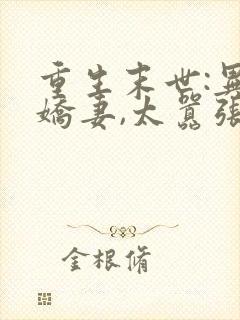 重生末世:異
嬌妻,太囂張
金根脩